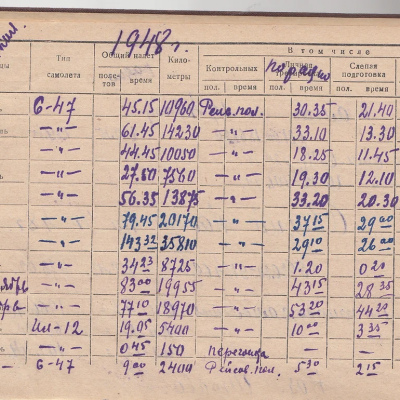 1948 г.
Тип самолета
Общий налет
полетов
время
Километры
В том числе
Контрольных
пол.
время
пол.
время
Слепая подготовка
пол.
время
С-47 45.15 10960 Рейс. пол. 30.35 21.40
—"— 61.45 14230 —"— 33.10 13.30
—"— 44.45 10050 —"— 18.25 11.45
—"— 27.50 7560 —"— 19.30 12.10
—"— 56.35 13875 —"— 33.20 20.30
—"— 79.45 20170 —"— 37 15 29 00
—"— 143 32 35810 —"— 29 10 26 00
—"— 34 23 8725 —"— 1.20 0 20
—"— 83 00 19955 —"— 43 15 28 35
—"— 77 10 18970 —"— 53 20 44 20
Ил-12 19.05 5400 —"— 10 00 3 35
—"— 0 45 150 Перегонка
С-47 9 00 2400 Рейсов. пол. 5 30 2 15